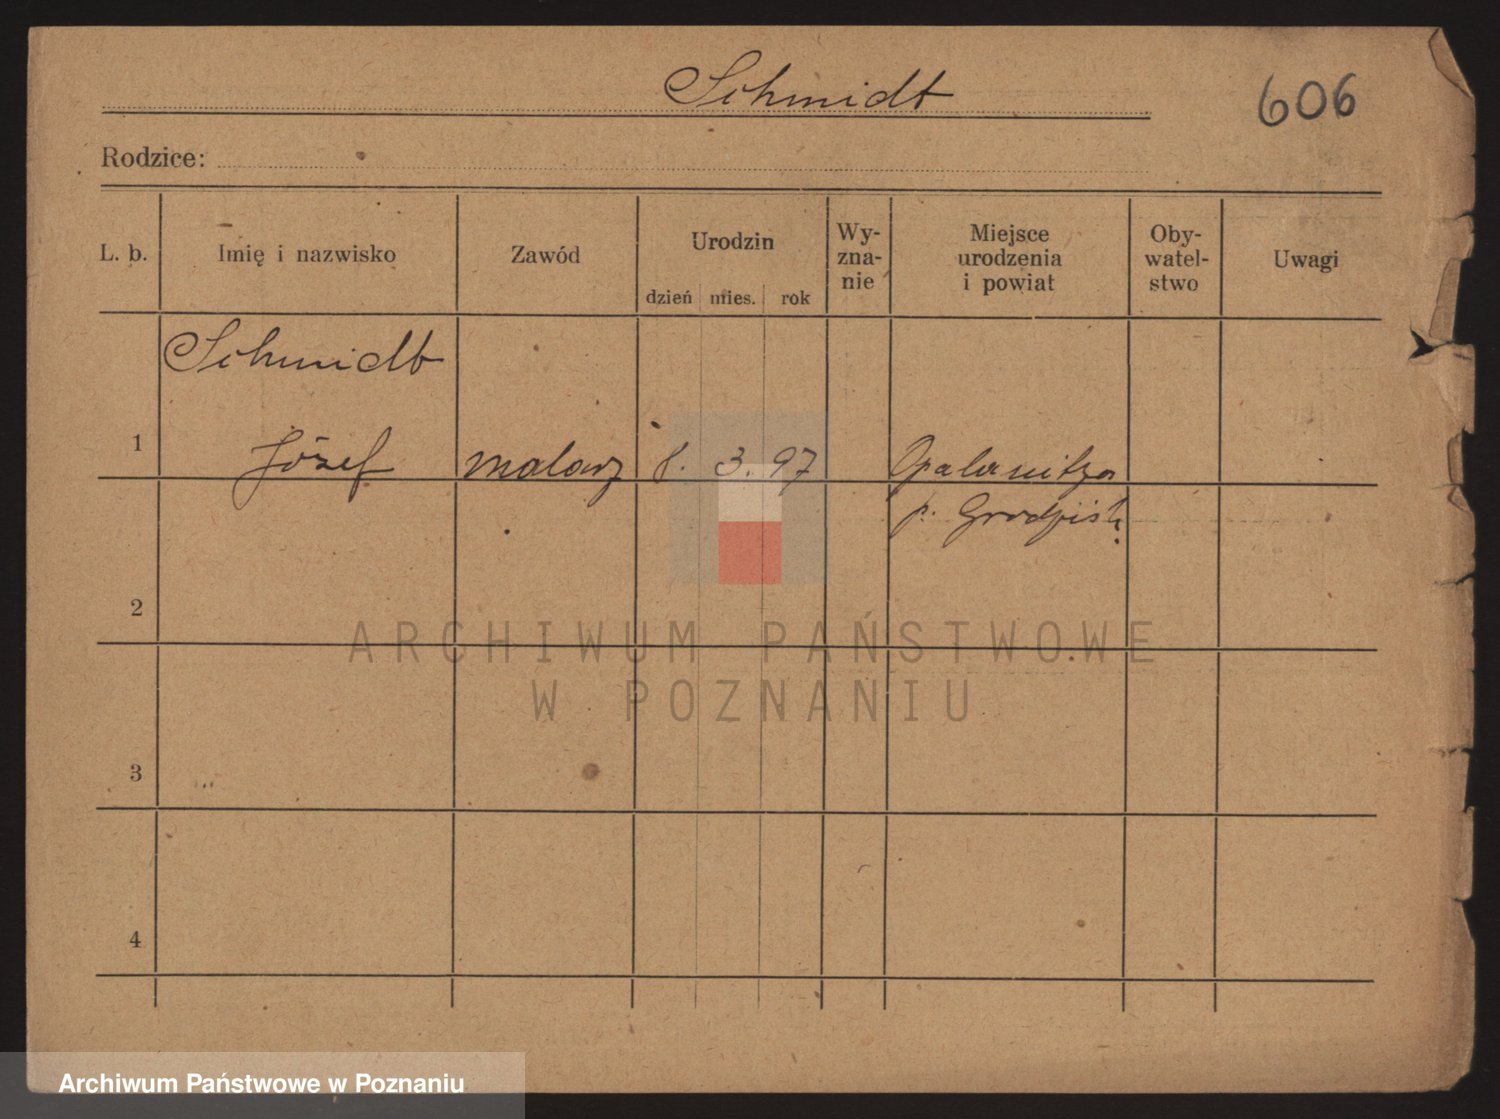 Schmidt
606
Rodzice:
L. b.
Imię i nazwisko
Zawód
Urodzin
dzień mies. rok
Wy-
zna-
nie
Miejsce
urodzenia
i powiat
Oby-
watel-
stwo
Uwagi
Schmidt
1 Józef malarz 8. 3. 97 Opalenitza
p. Grodzisk
2
3
4
ARCHIWUM PAŃSTWOWE
W POZNANIU
Archiwum Państwowe w Poznaniu